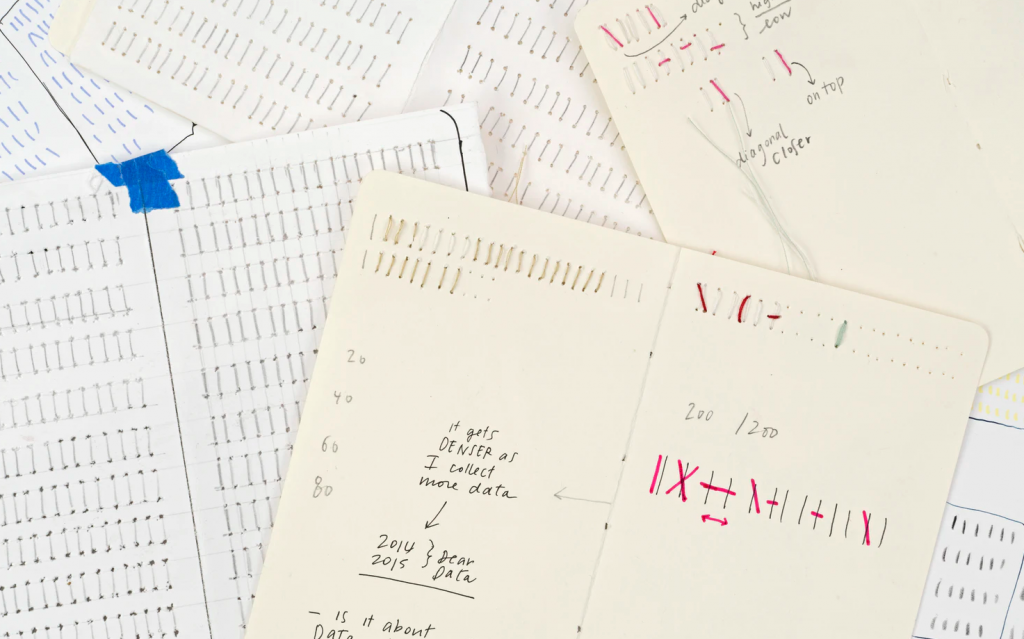 on top
diagonal
closer
20
40
60
80
it gets
DENSER as
I collect
more data
2014
2015
Dear
Data
200 /200
– is it about
Data